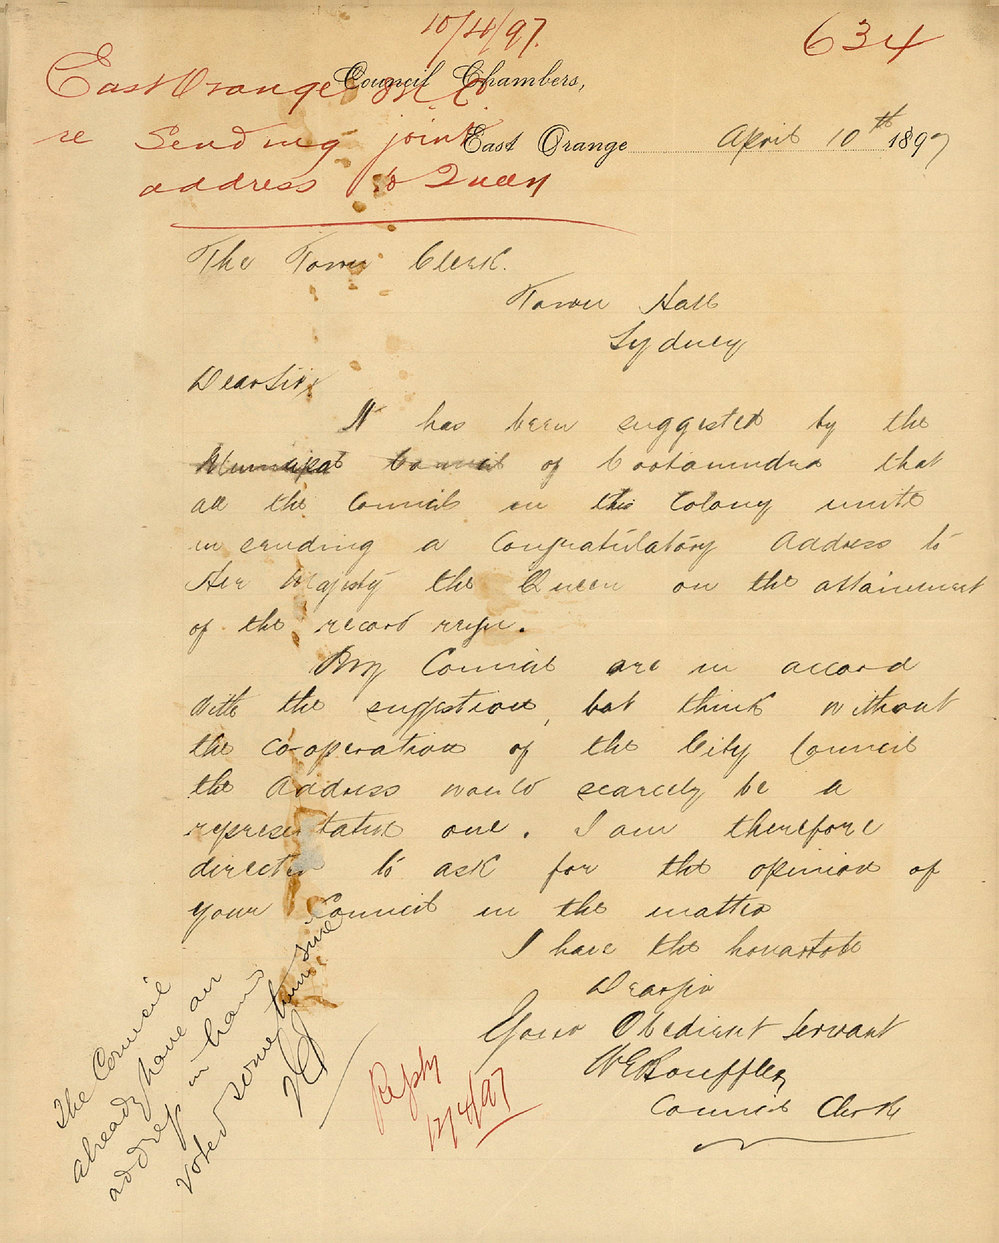 10/4/97.
634
East Orange M C
re Sending joint
address to Queen
Council Chambers,
East Orange April 10th 1897
The Town Clerk.
Town Hall
Sydney
Dear Sir,
It has been suggested by the
Municipal Council of Cootamundra that
all the Councils in this Colony unite
in sending a Congratulatory Address to
Her Majesty the Queen on the attainment
of the record reign.
My Council are in accord
with the suggestion, but think without
the co-operation of the City Council
the Address would scarcely be a
representative one. I am therefore
directed to ask for the opinion of
your Council in the matter
I have the honor to be
Dear Sir
Your Obedient Servant
Council Clerk
The Council
already have an
address in hand
voted some time since
Reply
12/4/97